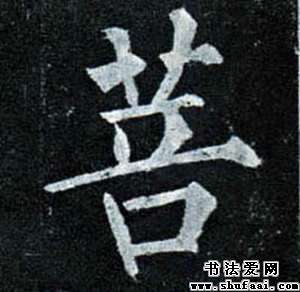 菩
书法爱网
www.shufaai.com